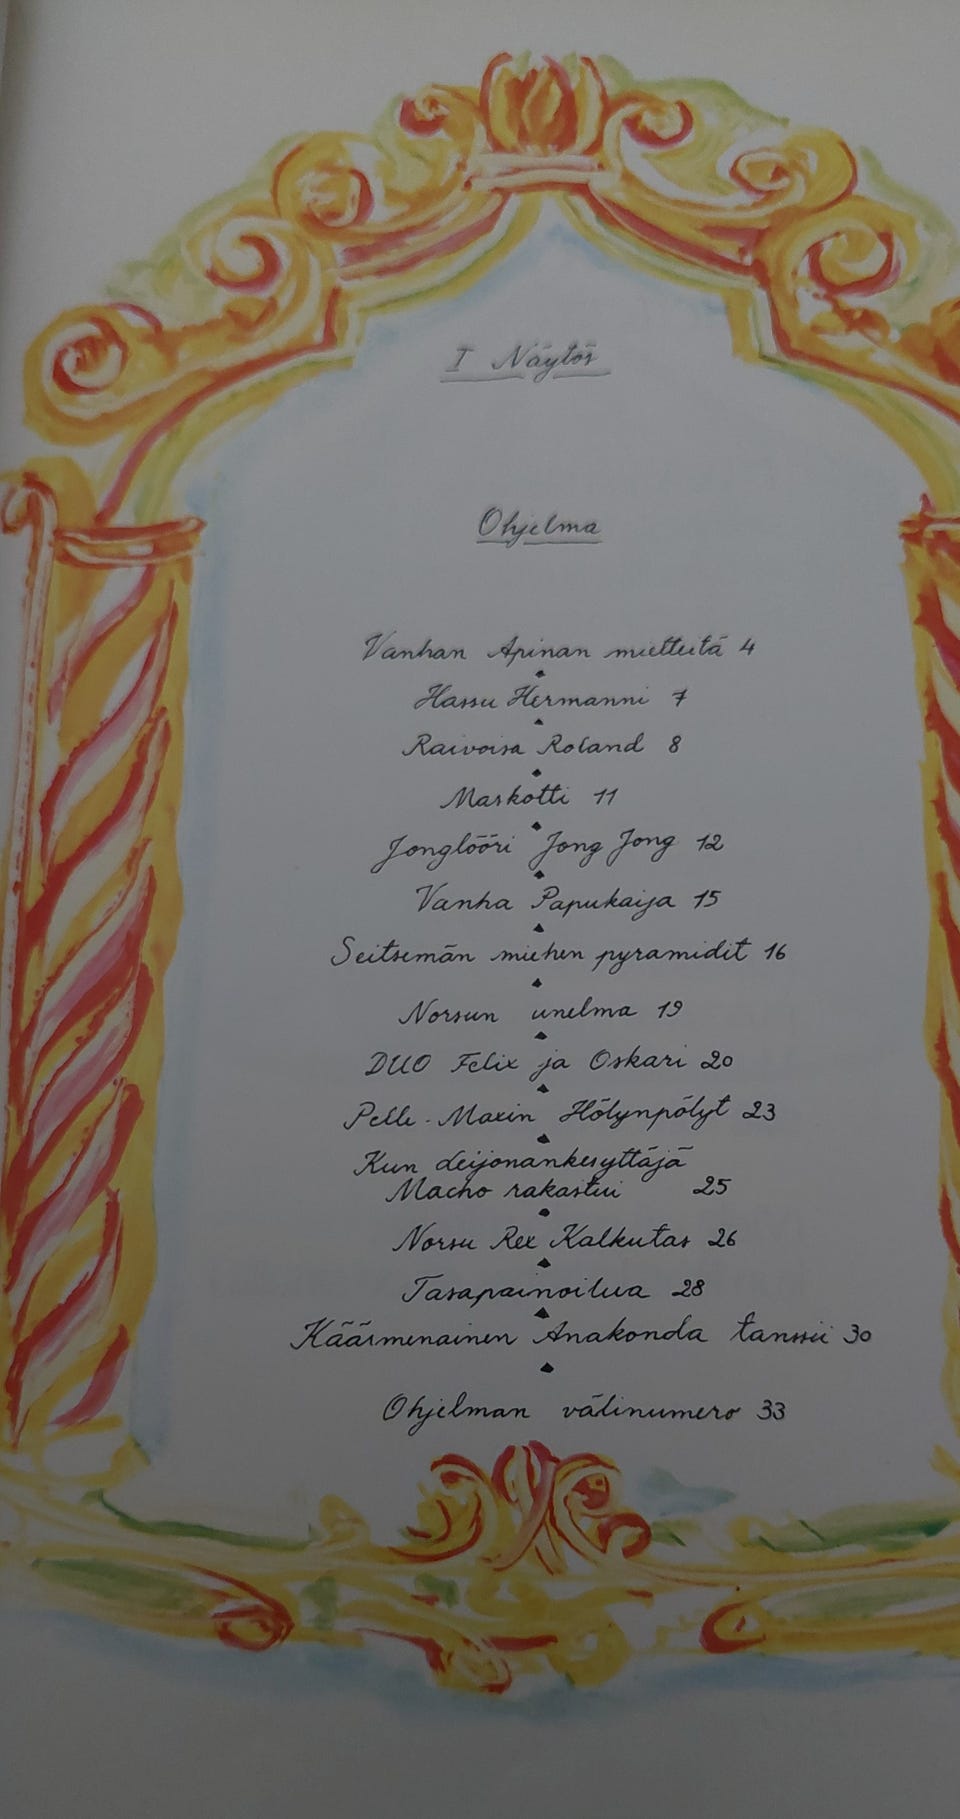 I Näytös
Ohjelma
Vanhan Apinan mietteitä 4
Hassu Hermanni 7
Raivoisa Roland 8
Maskotti 11
Jonglööri Jong Jong 12
Vanha Papukaija 15
Seitsemän miehen pyramidit 16
Norsun unelma 19
DUO Felix ja Oskari 20
Pelle-Maxin Hölynpölyt 23
Kun leijonankesyttäjä
Macho rakastui 25
Norsu Rex Kalkutas 26
Tasapainoilua 28
Käärmenainen Anakonda tanssii 30
Ohjelman välinumero 33